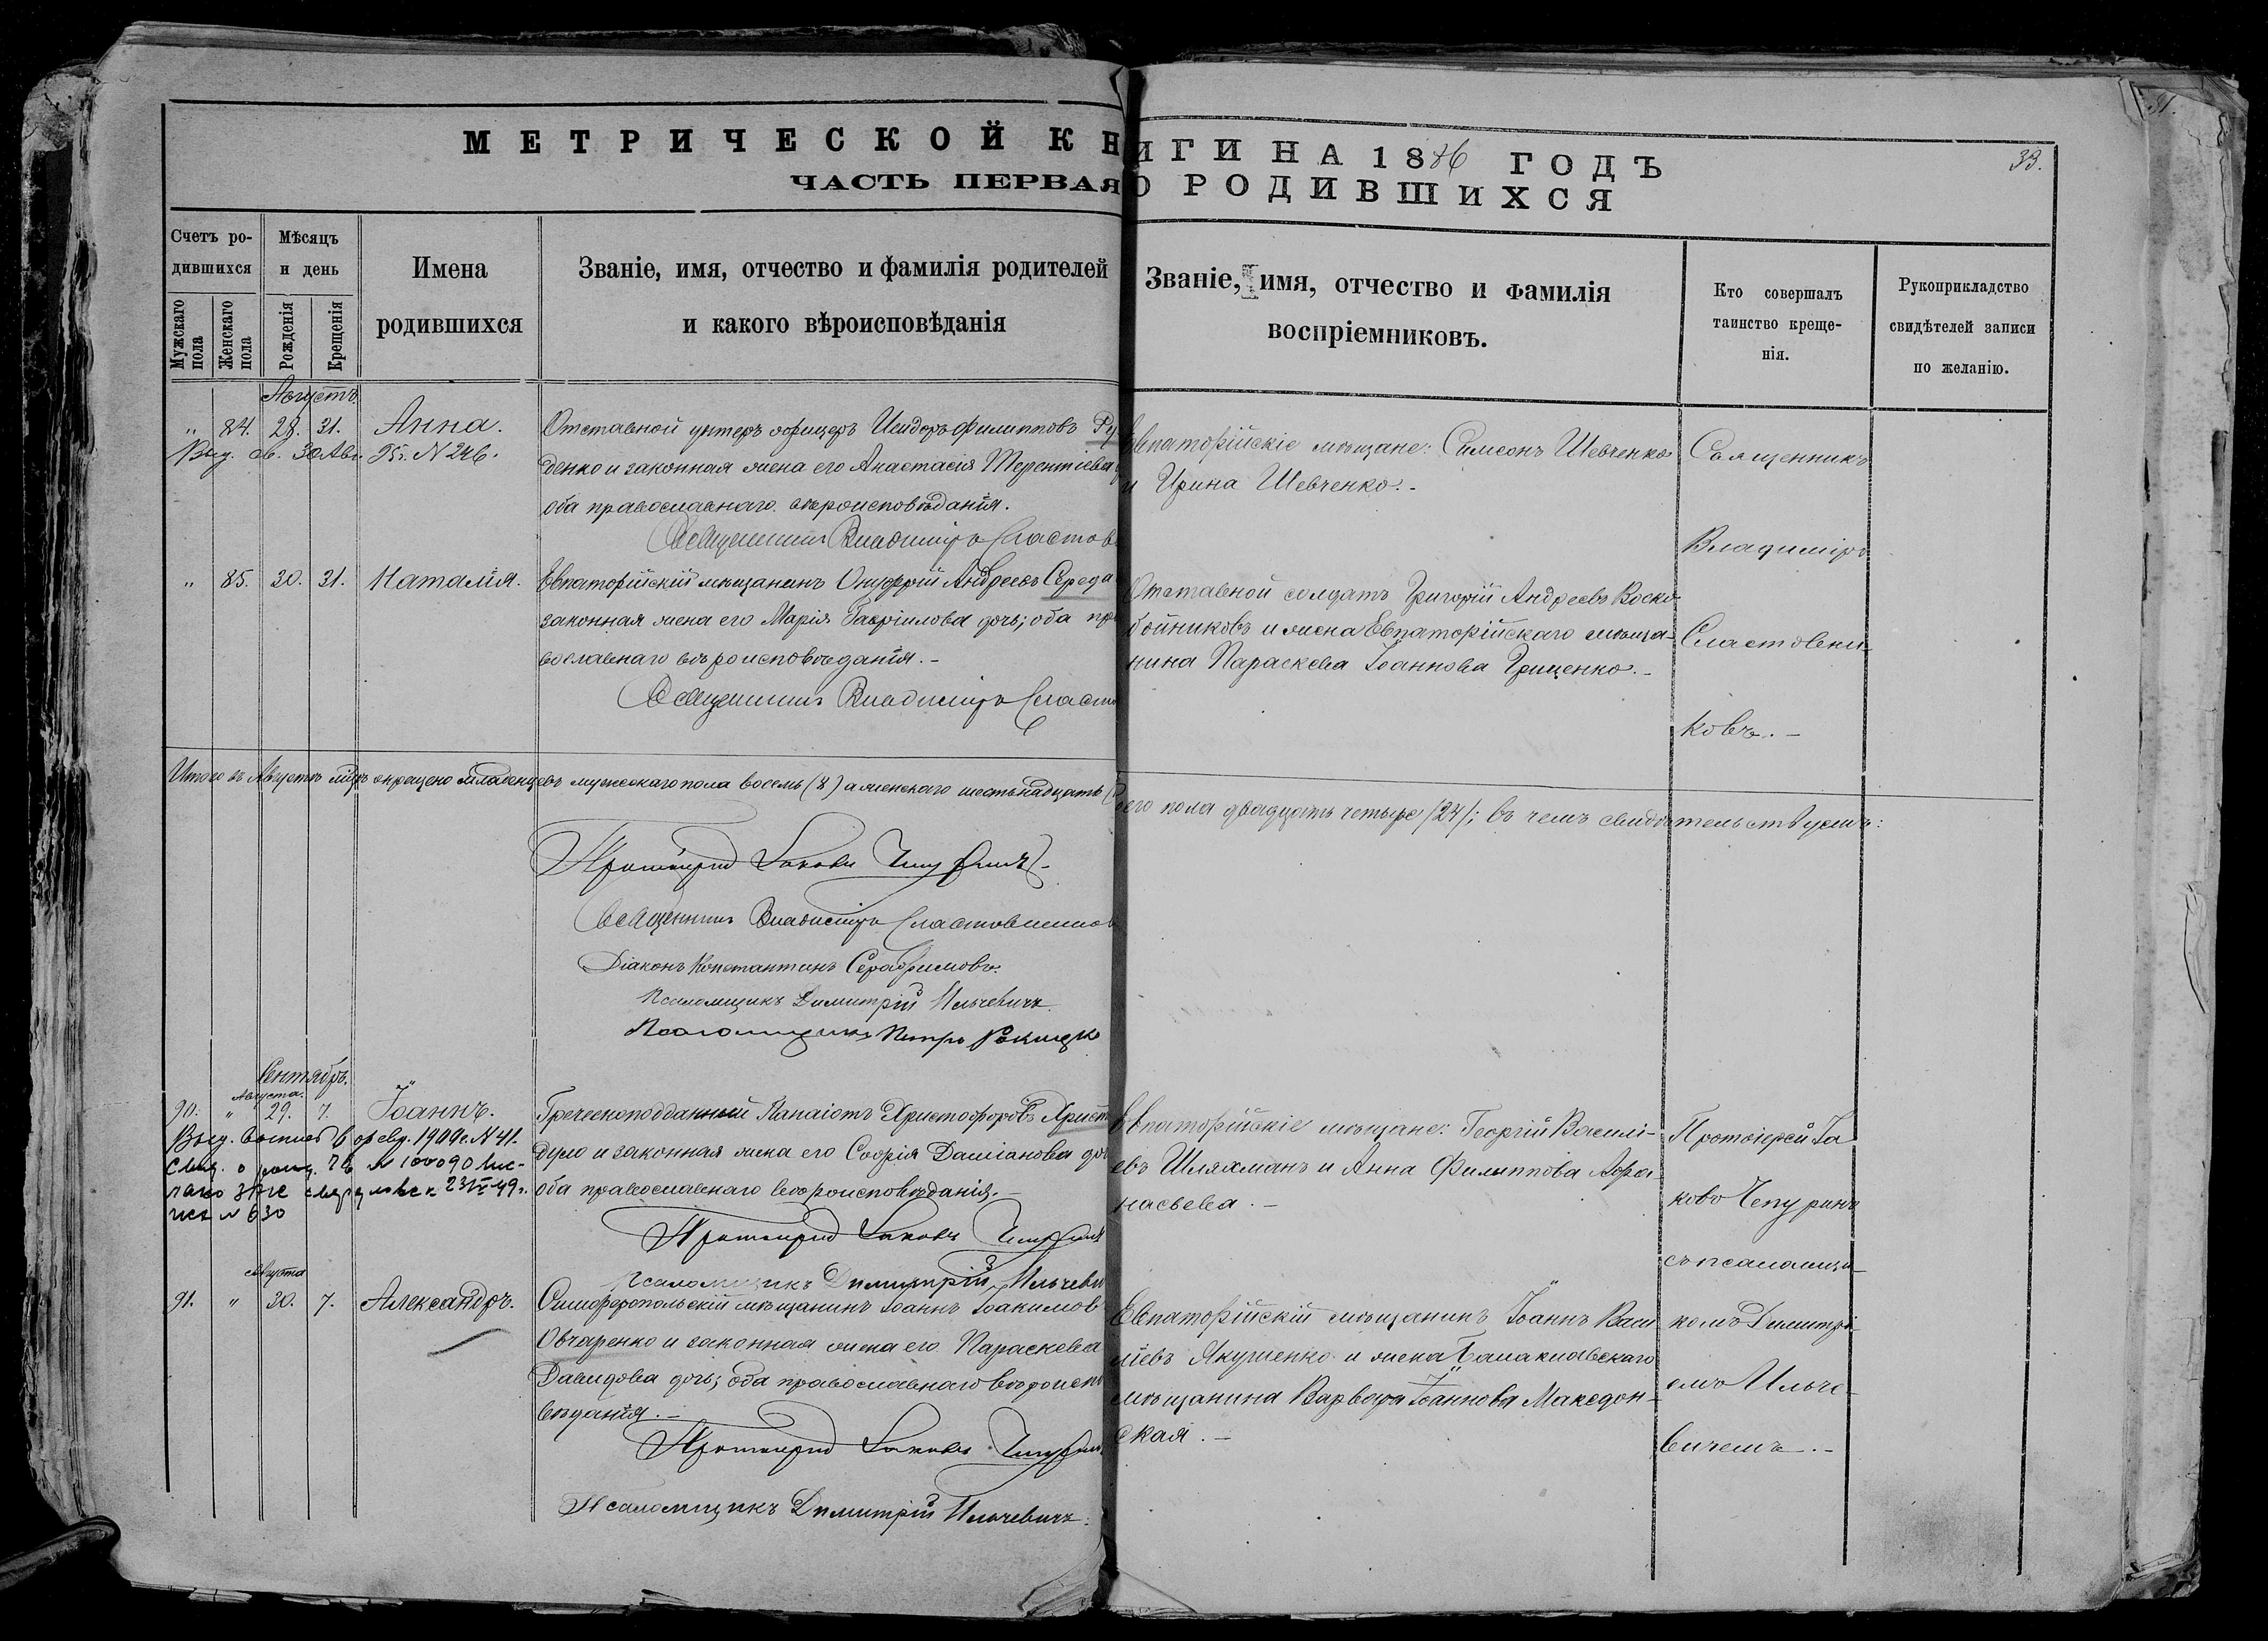 МЕТРИЧЕСКОЙ КНИГИ НА 1886 ГОДЪ
ЧАСТЬ ПЕРВАЯ О РОДИВШИХСЯ
33.
91.
Счетъ родившихся
Мужскаго пола
Женскаго пола
Мѣсяцъ и день
Рожденія
Крещенія
Имена
родившихся
Званіе, имя, отчество и фамилія родителей
и какого вѣроисповѣданія
Званіе, имя, отчество и фамилія
воспріемниковъ.
Кто совершалъ
таинство креще-
нія.
Рукоприкладство
свидѣтелей записи
по желанію.
Августъ.
„ 84. 28. 31. Анна.
Выд. св. 30 Авг. 95 г. N 246.
Отставной унтеръ офицеръ Исидоръ Филипповъ Ру
денко и законная жена его Анастасія Терентіева
оба православнаго вѣроисповѣданія.
Священникъ Владиміръ Сластов
Евпаторійскіе мѣщане: Симеонъ Шевченко
и Ирина Шевченко.-
Священникъ
Владиміръ
Сластовни-
ковъ.-
„ 85. 30. 31. Наталія.
Евпаторійскій мѣщанинъ Онуфрій Андреевъ Середа
законная жена его Марія Гавріилова дочь; оба пра
вославнаго вѣроисповѣданія.-
Священникъ Владиміръ Сласто
Отставной солдатъ Григорій Андреевъ Воско-
бойниковъ и жена Евпаторійскаго мѣща-
нина Параскева Іоаннова Гриценко.-
Итого въ Августѣ мцѣ окрещено младенцевъ мужескаго пола восемь (8) а женскаго шестьнадцать
его пола двадцать четыре (24); въ чемъ свидѣтельствуемъ:
Протоіерей Іаковъ Чепуринъ
Священникъ Владиміръ Сластовников
Діаконъ Константинъ Серафимовъ.
Псаломщикъ Димитрій Ильчевичъ
Псаломщикъ Петръ
Сентябрь.
Августа.
90. „ 29. 7. Іоаннъ.
Выд. выпись 6 февр. 1909 г. N 41.
Свид. о рожд.
N 630
Греческоподданный Панаіотъ Христофоровъ Христо
дуло и законная жена его Софія Даміанова доч
оба православнаго вѣроисповѣданія.-
Протоіерей Іаковъ Чепуринъ
Псаломщикъ Димитрій Ильчеви
Евпаторійскіе мѣщане: Георгій Василі-
евъ Шляхманъ и Анна Филиппова Афа-
насьева.-
Протоіерей Іа
ковъ Чепуринъ
съ псаломщи-
комъ Димитрі-
емъ Ильче-
вичемъ.-
Августа
91. „ 30. 7. Александръ.
Симферопольскій мѣщанинъ Іоаннъ Іоакимов
Овчаренко и законная жена его Параскева
Давидова дочь; оба православнаго вѣроиспо
вѣданія.-
Протоіерей Іаковъ Чепурин
Псаломщикъ Димитрій Ильчевичъ.
Евпаторійскій мѣщанинъ Іоаннъ Васи
ліевъ Якушенко и жена Балаклавскаго
мѣщанина Варвара Іоаннова Македон-
ская.-